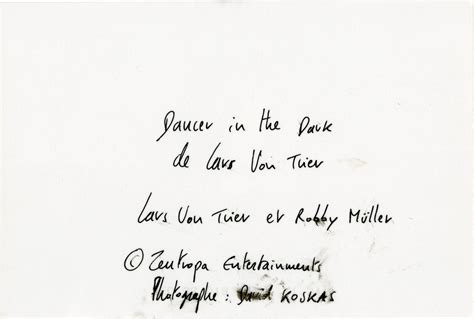 Dancer in the Dark
de Lars Von Trier
Lars Von Trier et Robby Müller
© Zentropa Entertainments
Photographe : David KOSKAS